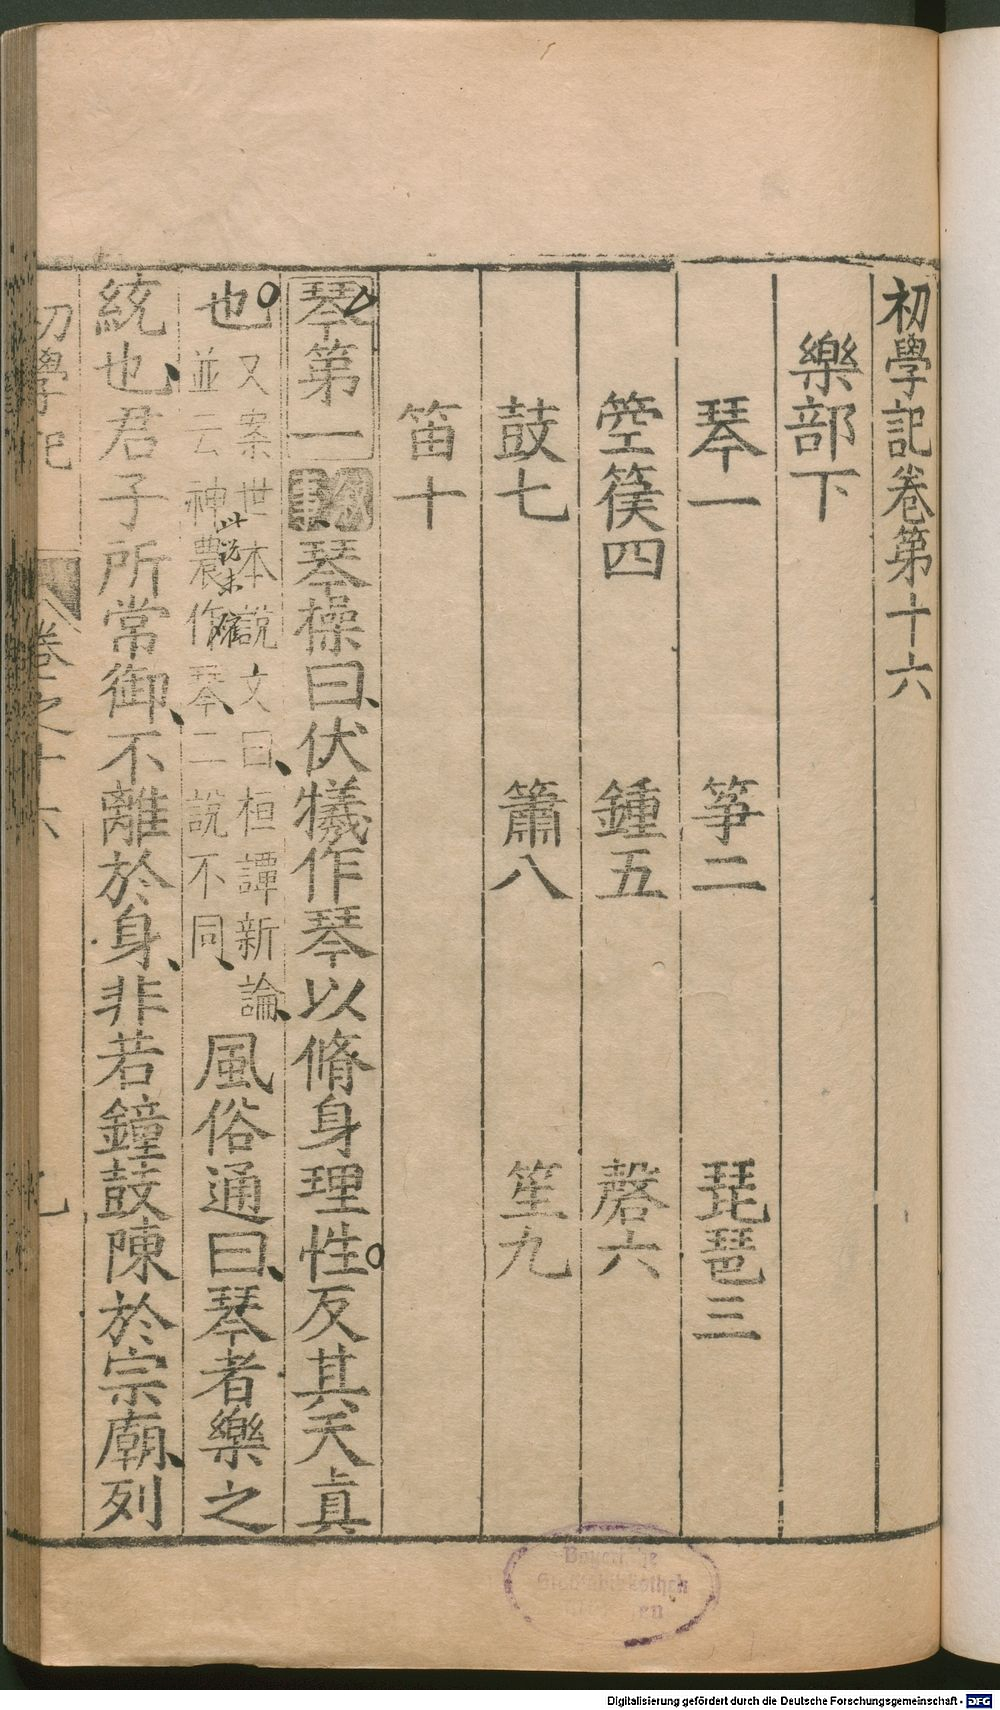 初學記卷第十六
樂部下
琴一 筝二 琵琶三
箜篌四 鍾五 磬六
鼓七 簫八 笙九
笛十
琴第一 敘事 琴操曰伏犧作琴以脩身理性反其天真
也 又案世本說文曰桓譚新論
並云神農作琴二說不同 風俗通曰琴者樂之
此说未確
統也君子所常御不離於身非若鐘鼓陳於宗廟列
初學記 卷之十六 九
Bayerische
Staatsbibliothek
München
Digitalisierung gefördert durch die Deutsche Forschungsgemeinschaft - DFG